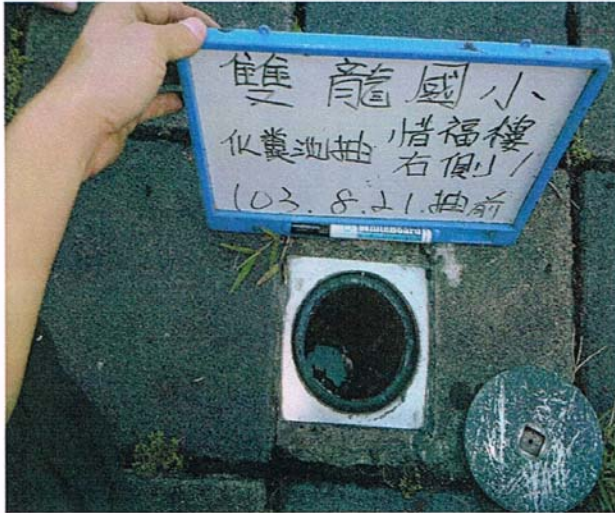 雙龍國小
化糞池抽 惜福樓
右側1
103.8.21.抽前
Whiteboard